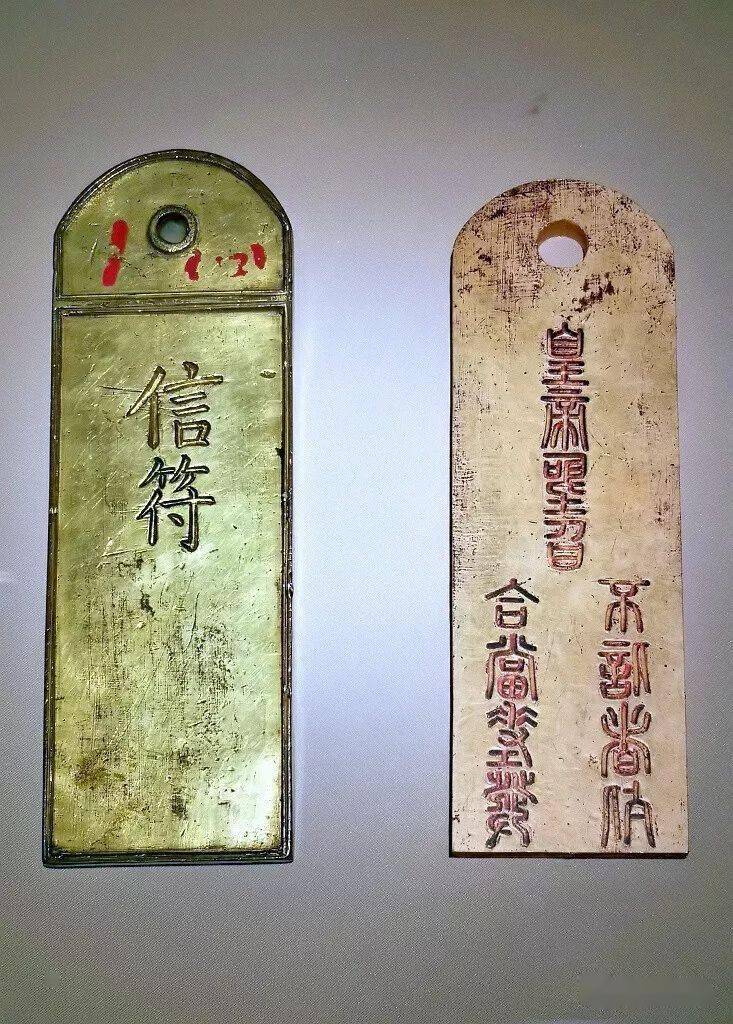 信符
皇帝聖旨
合當差發
不信者斬